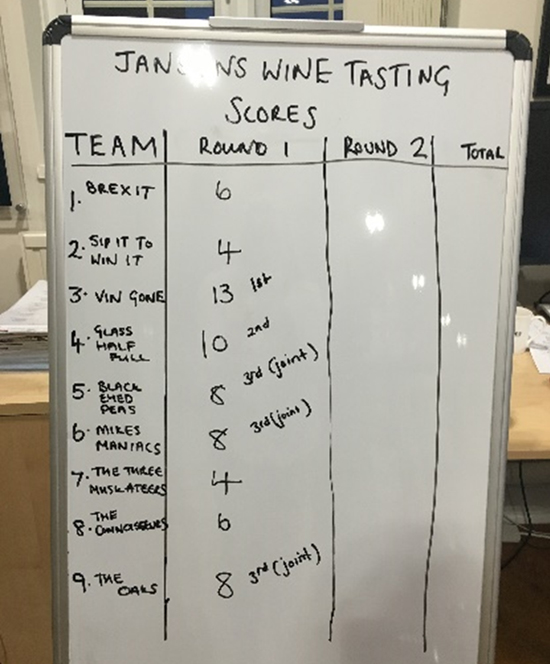 JANSONS WINE TASTING
SCORES
TEAM ROUND 1 ROUND 2 TOTAL
1. BREXIT 6
2. SIP IT TO
WIN IT 4
3. VIN GONE 13 1st
4. GLASS
HALF
FULL 10 2nd
5. BLACK
EYED
PEAS 8 3rd (joint)
6. MIKES
MANIACS 8 3rd (joint)
7. THE THREE
MUSKATEERS 4
8. THE
CONNOISSEURS 6
9. THE
OAKS 8 3rd (joint)